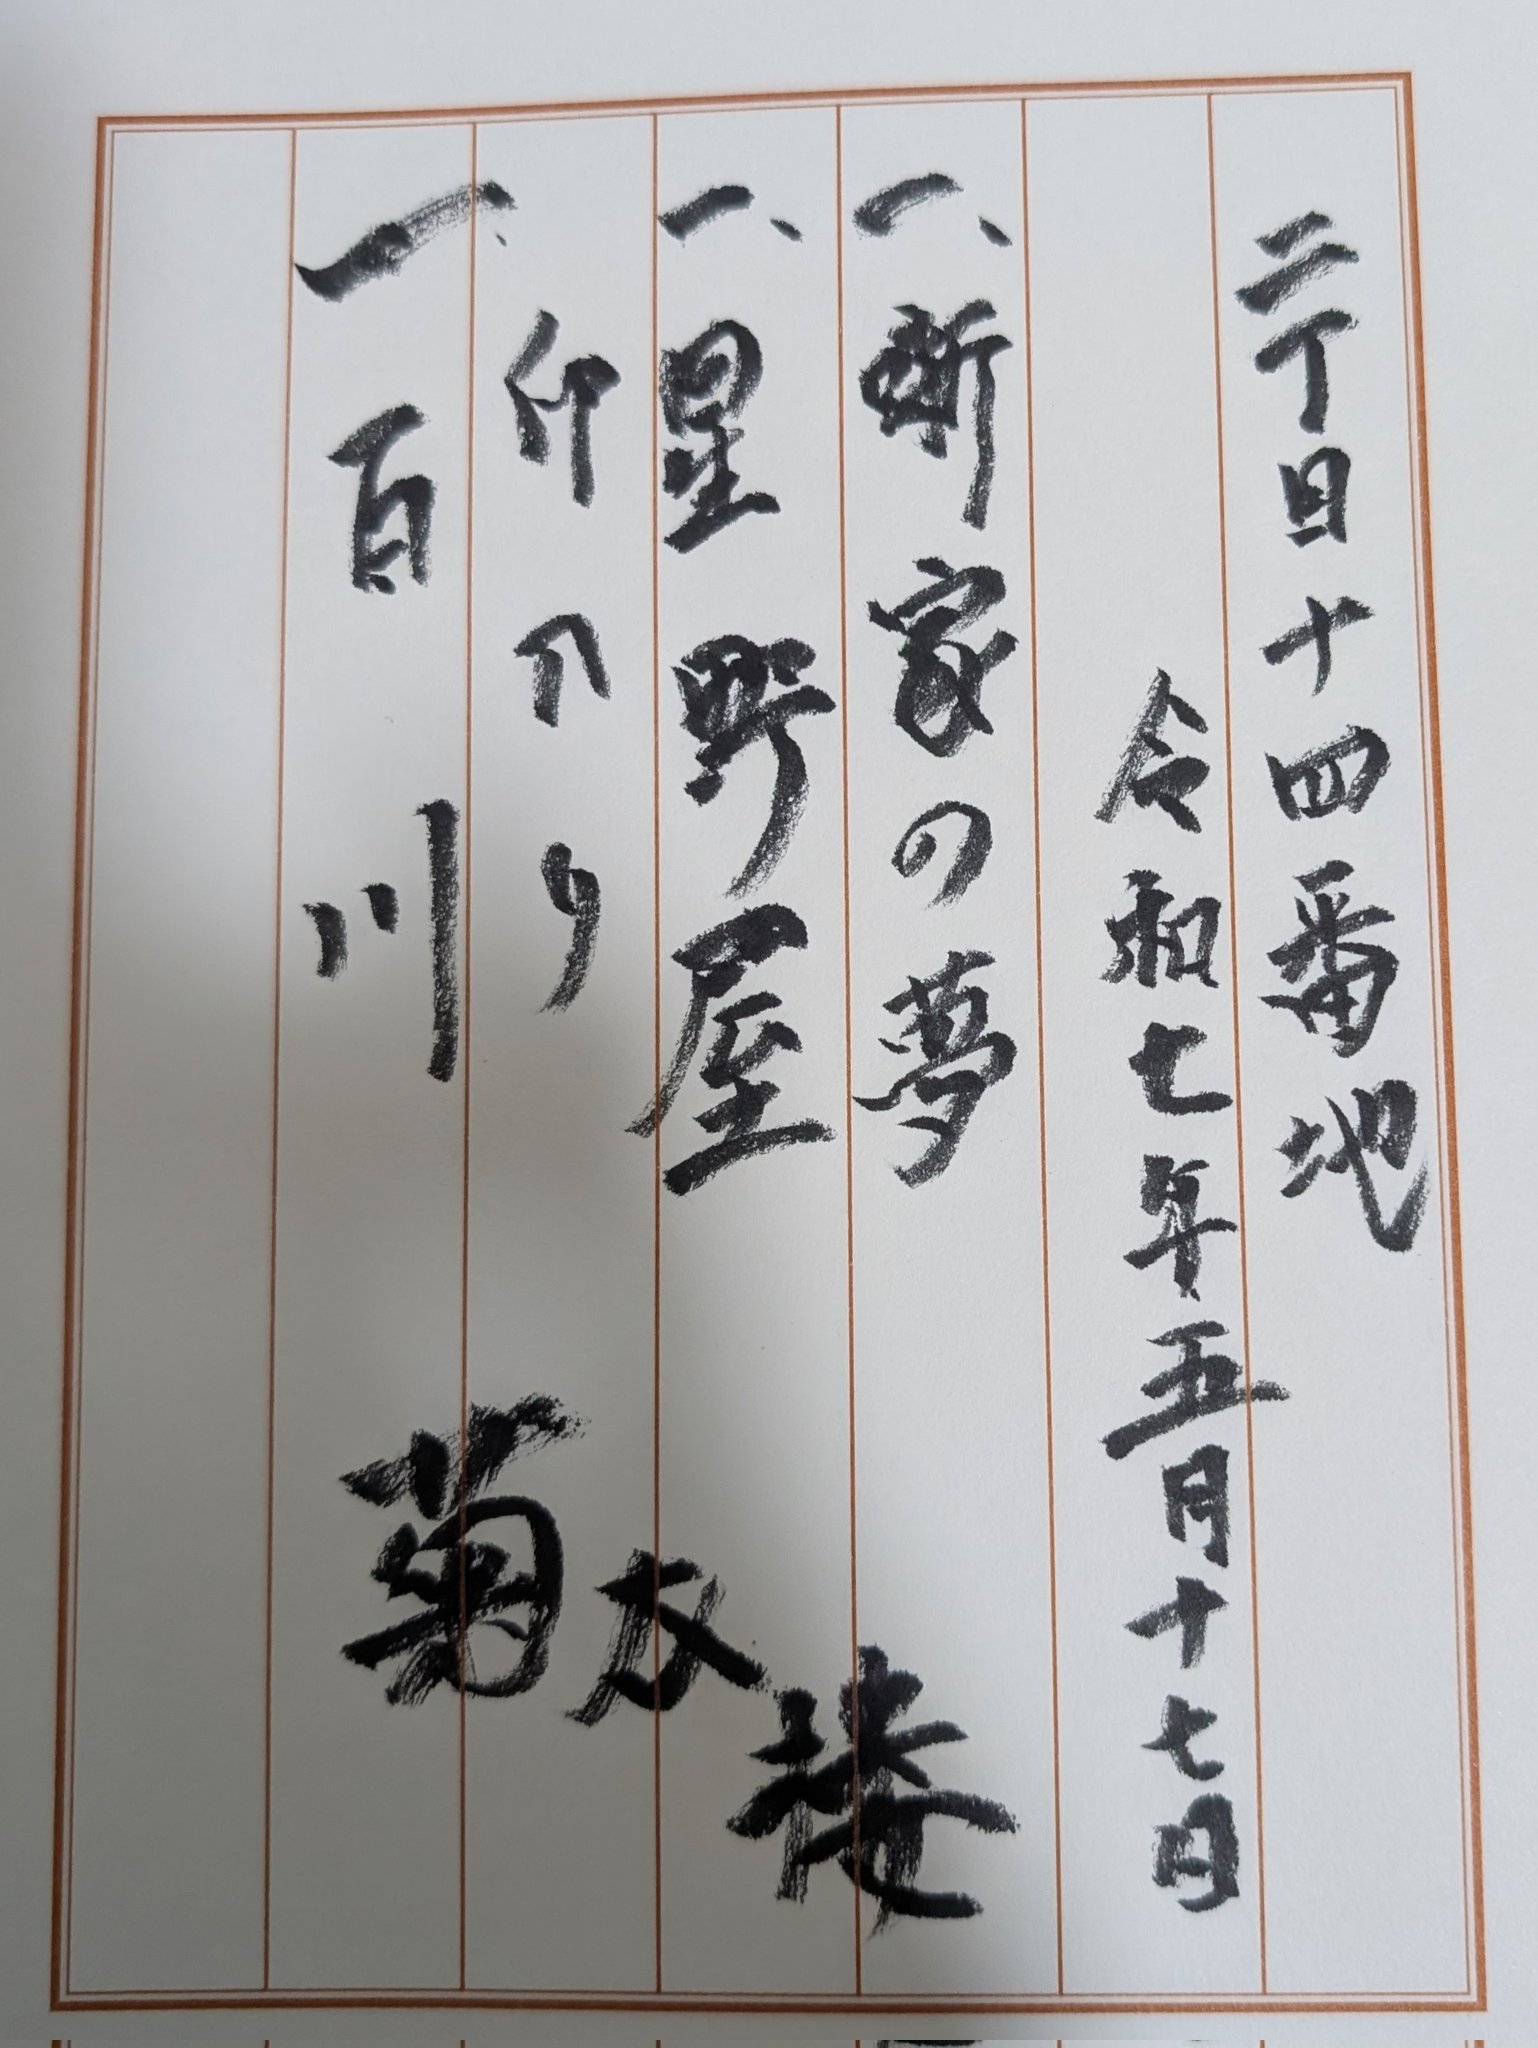 二丁目十四番地
令和七年五月十七日
一、噺家の夢
一、星野屋
仲入り
一、百川
菊太楼